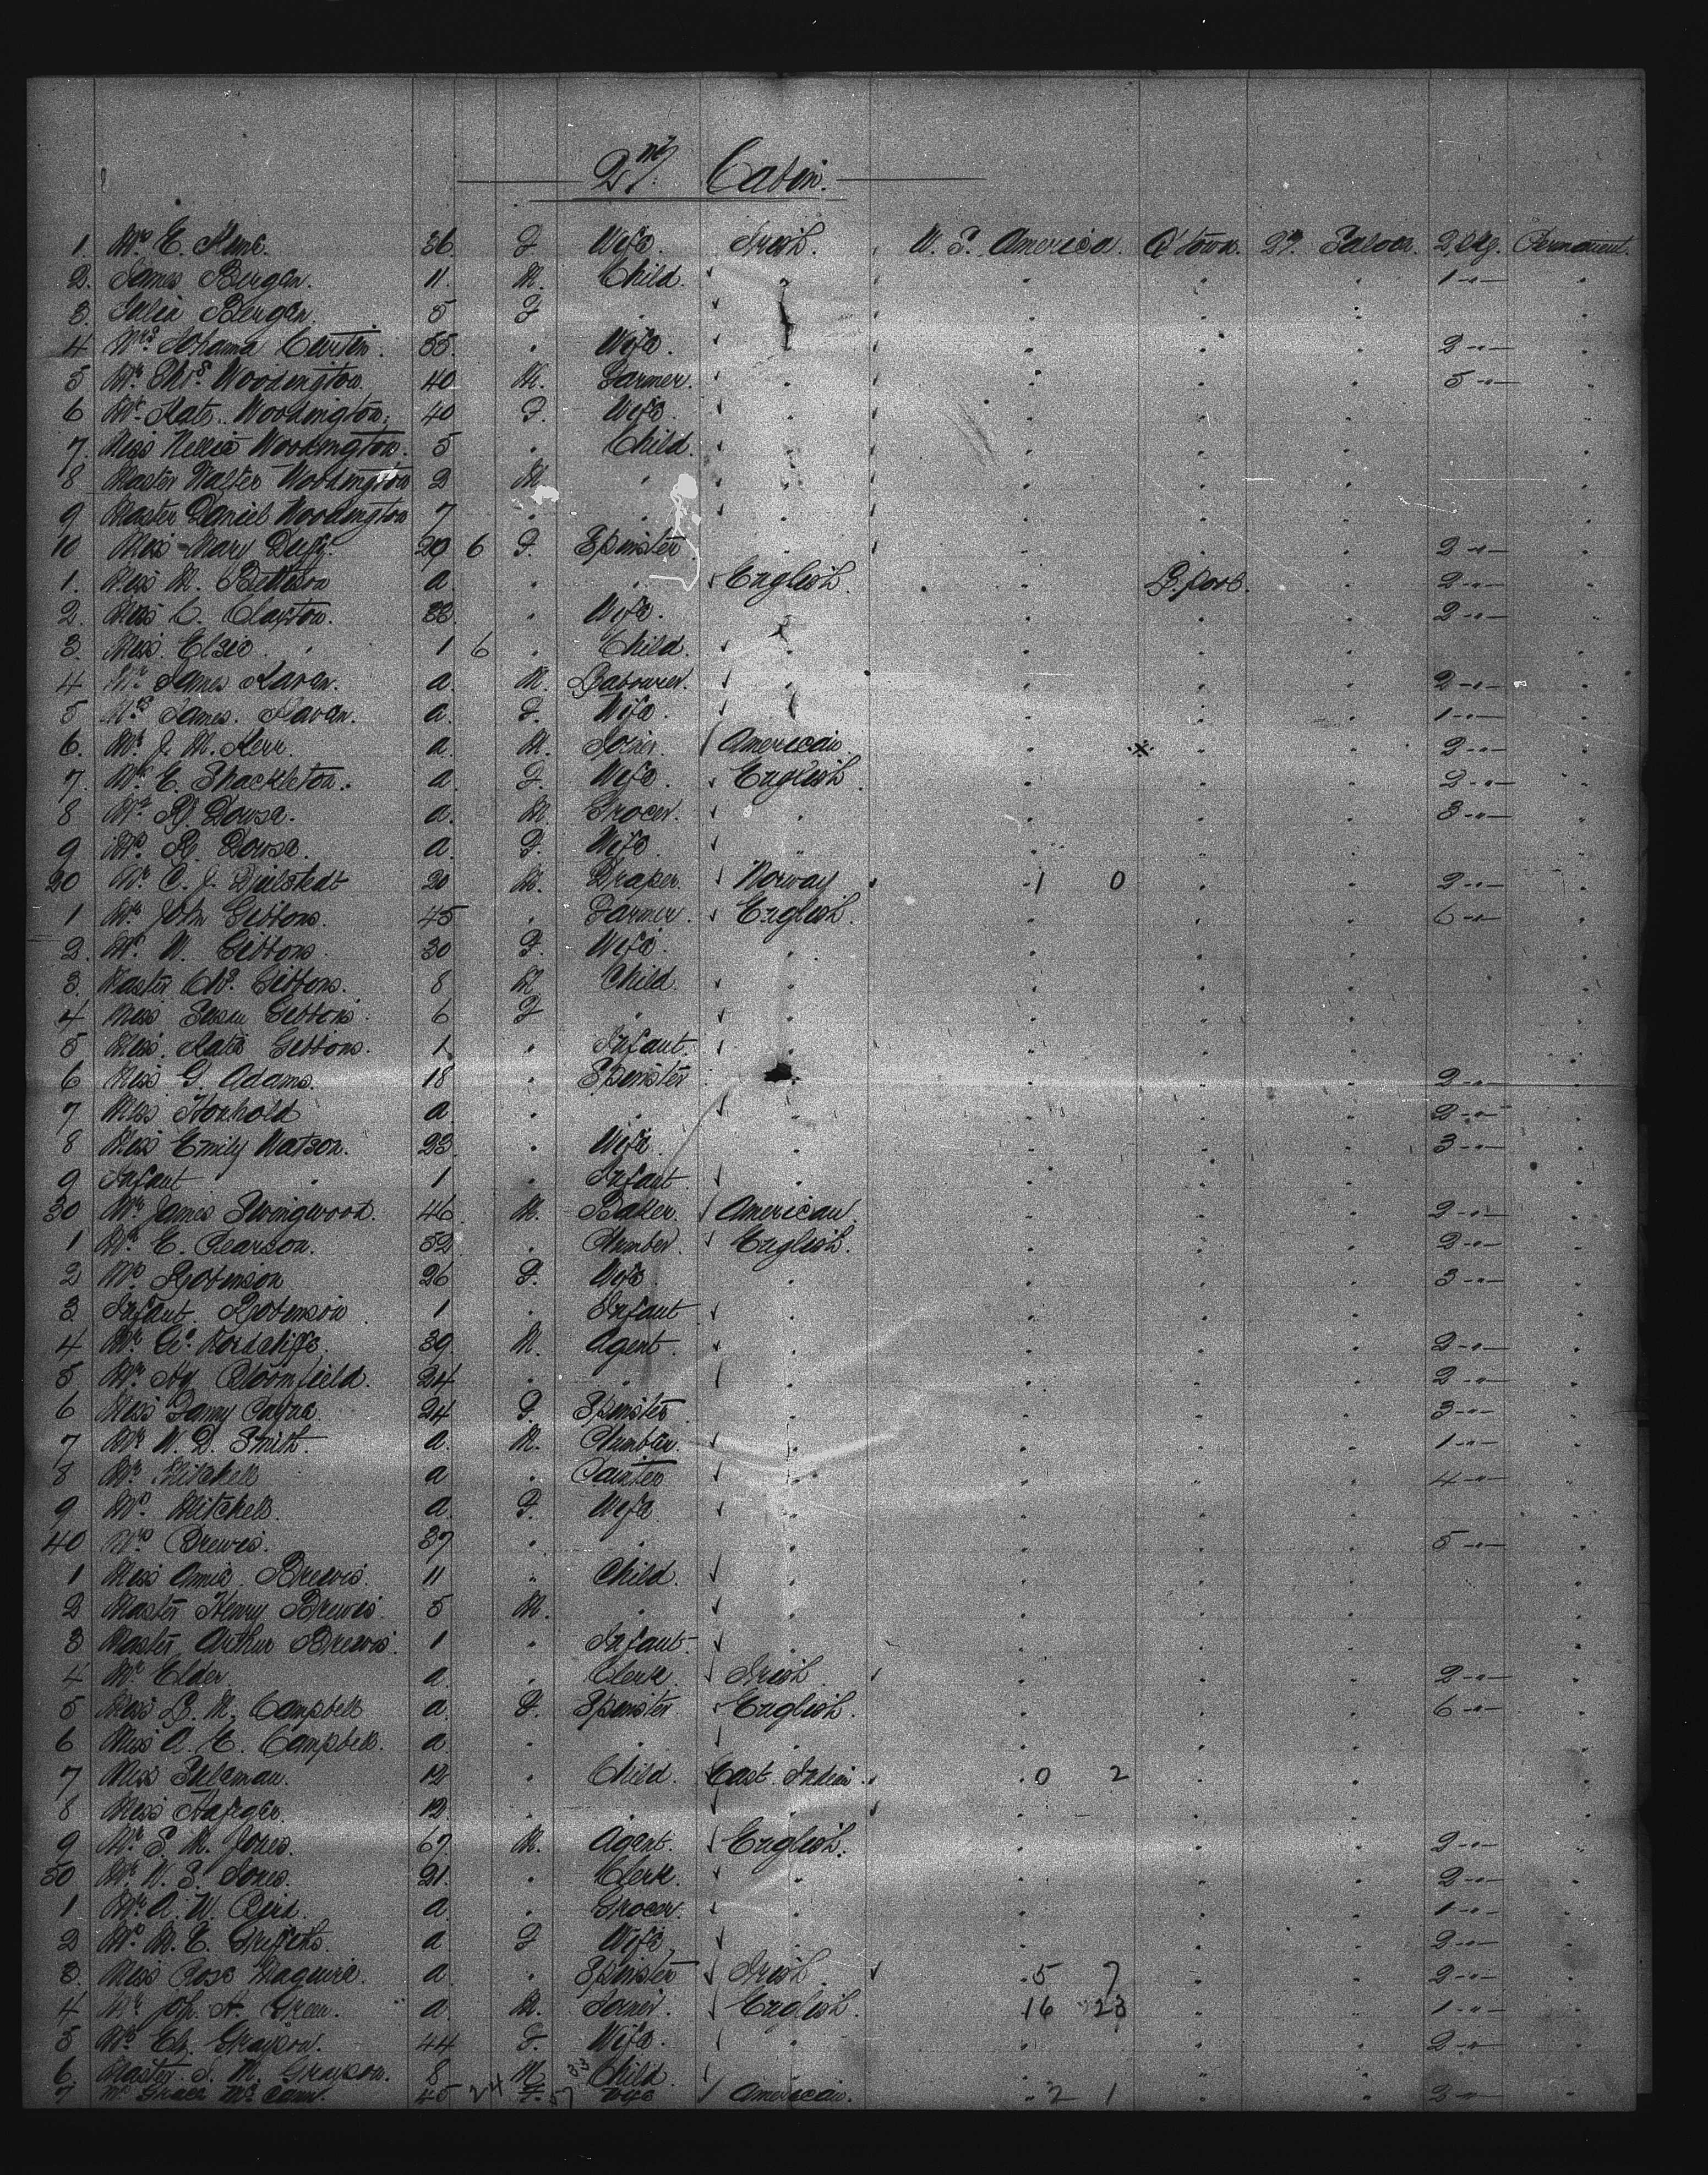 2nd Cabin.
1. Mrs E. 36 F Wife. Irish. U. S. America. Q'town. 2nd Saloon. 2 pkg. Permanent.
2. James Bergan. 11. M. Child. 1 "
3. Julia Bergan. 5 F
4 Mrs Johanna Curtin. 55. Wife. 2 "
5 Mr. Thos Woodington. 40 M. Farmer. 5 "
6 Mrs Kate Woodington. 40 F. Wife.
7. Miss Nellie Woodington. 5 Child.
8 Master Walter Woodington 2 M
9 Master Daniel Woodington 7
10 Miss Mary Duffy. 20 6 F. Spinster 2 "
1. Miss M. a. English. L. pool. 2 "
2. Mrs C. Clayton. 33. Wife. 2 "
3. Miss. Elsie. " 1 6 Child.
4 Mr James Kavan. a. M. Labourer. 2 "
5 Mrs James. Kavan. a. F. Wife. 1 "
6. Mr J. M. Kerr. a. M. Joiner. American. 2 "
7. Mrs E. Shackleton. a. F. Wife. English. 2 "
8 Mr R. Dowse. a. M. Grocer. 3 "
9 Mrs R. Dowse. a. F. Wife.
20 Mr C. J. 20 M. Draper. Norway. 1 0 2 "
1 Mr John Gibbons. 45 Farmer. English. 6 "
2. Mrs W. Gibbons. 30 F. Wife.
3. Master Chs. Gibbons. 8 M Child.
4 Miss Susan Gibbons. 6 F
5 Miss. Katie Gibbons. 1 Infant.
6 Miss G. Adams. 18 Spinster 2 "
7 Miss a 2 "
8 Miss Emily Watson. 23. Wife. 3 "
9 Infant " 1 Infant.
30 Mr James Swingwood. 46. M. Baker. American. 2 "
1 Mr E. Pearson. 52 Plumber. English. 2 "
2 Mrs Robinson 26 F. Wife. 3 "
3. Infant. Robinson 1 Infant
4 Mr Go. 39. M. Agent. 2 "
5 Mr Hy Bloomfield. 24 2 "
6 Miss Fanny 24 F. Spinster 3 "
7 Mr W. D. Smith. a. M. Plumber. 1 "
8 Mr Mitchell a Painter 4 "
9 Mrs Mitchell. a. F. Wife
40 Mrs Brewis. 37 5 "
1 Miss Annie Brewis. 11 Child.
2 Master Henry Brewis 5 M.
3 Master Arthur Brewis. 1 Infant
4 Mr Elder a. Clerk. Irish 2 "
5 Miss L. M. Campbell a. F. Spinster English. 6 "
6 Miss A. E. Campbell. a.
7 Miss 12 Child. East Indian. 0 2
8 Miss 12
9 Mr S. M. Jones. 67 M. Agent. English. 2 "
50 Mr W. S. Jones. 21. Clerk. 2 "
1 Mr A. W. a. Grocer. 1 "
2 Mrs M. E. Griffiths. a. F Wife 2 "
3. Miss Rose Maguire. a. Spinster Irish. 5 7 2 "
4 Mr Jph. A. Green. a. M. Joiner. English. 16 23 1 "
5 Mrs Grayson. 44 F. Wife. 2 "
6. Master J. M. Grayson. 8 M Child 33
7 Mrs Grace McCann. 45 24 F. 57 Wife American. 2 1 2 "